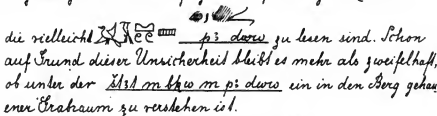 die vielleicht p: dww zu lesen sind. Schon
auf Grund dieser Unsicherheit bleibt es mehr als zweifelhaft,
ob unter der št3t m bkw m p: dww ein in den Berg gehau
ener Grabraum zu verstehen ist.